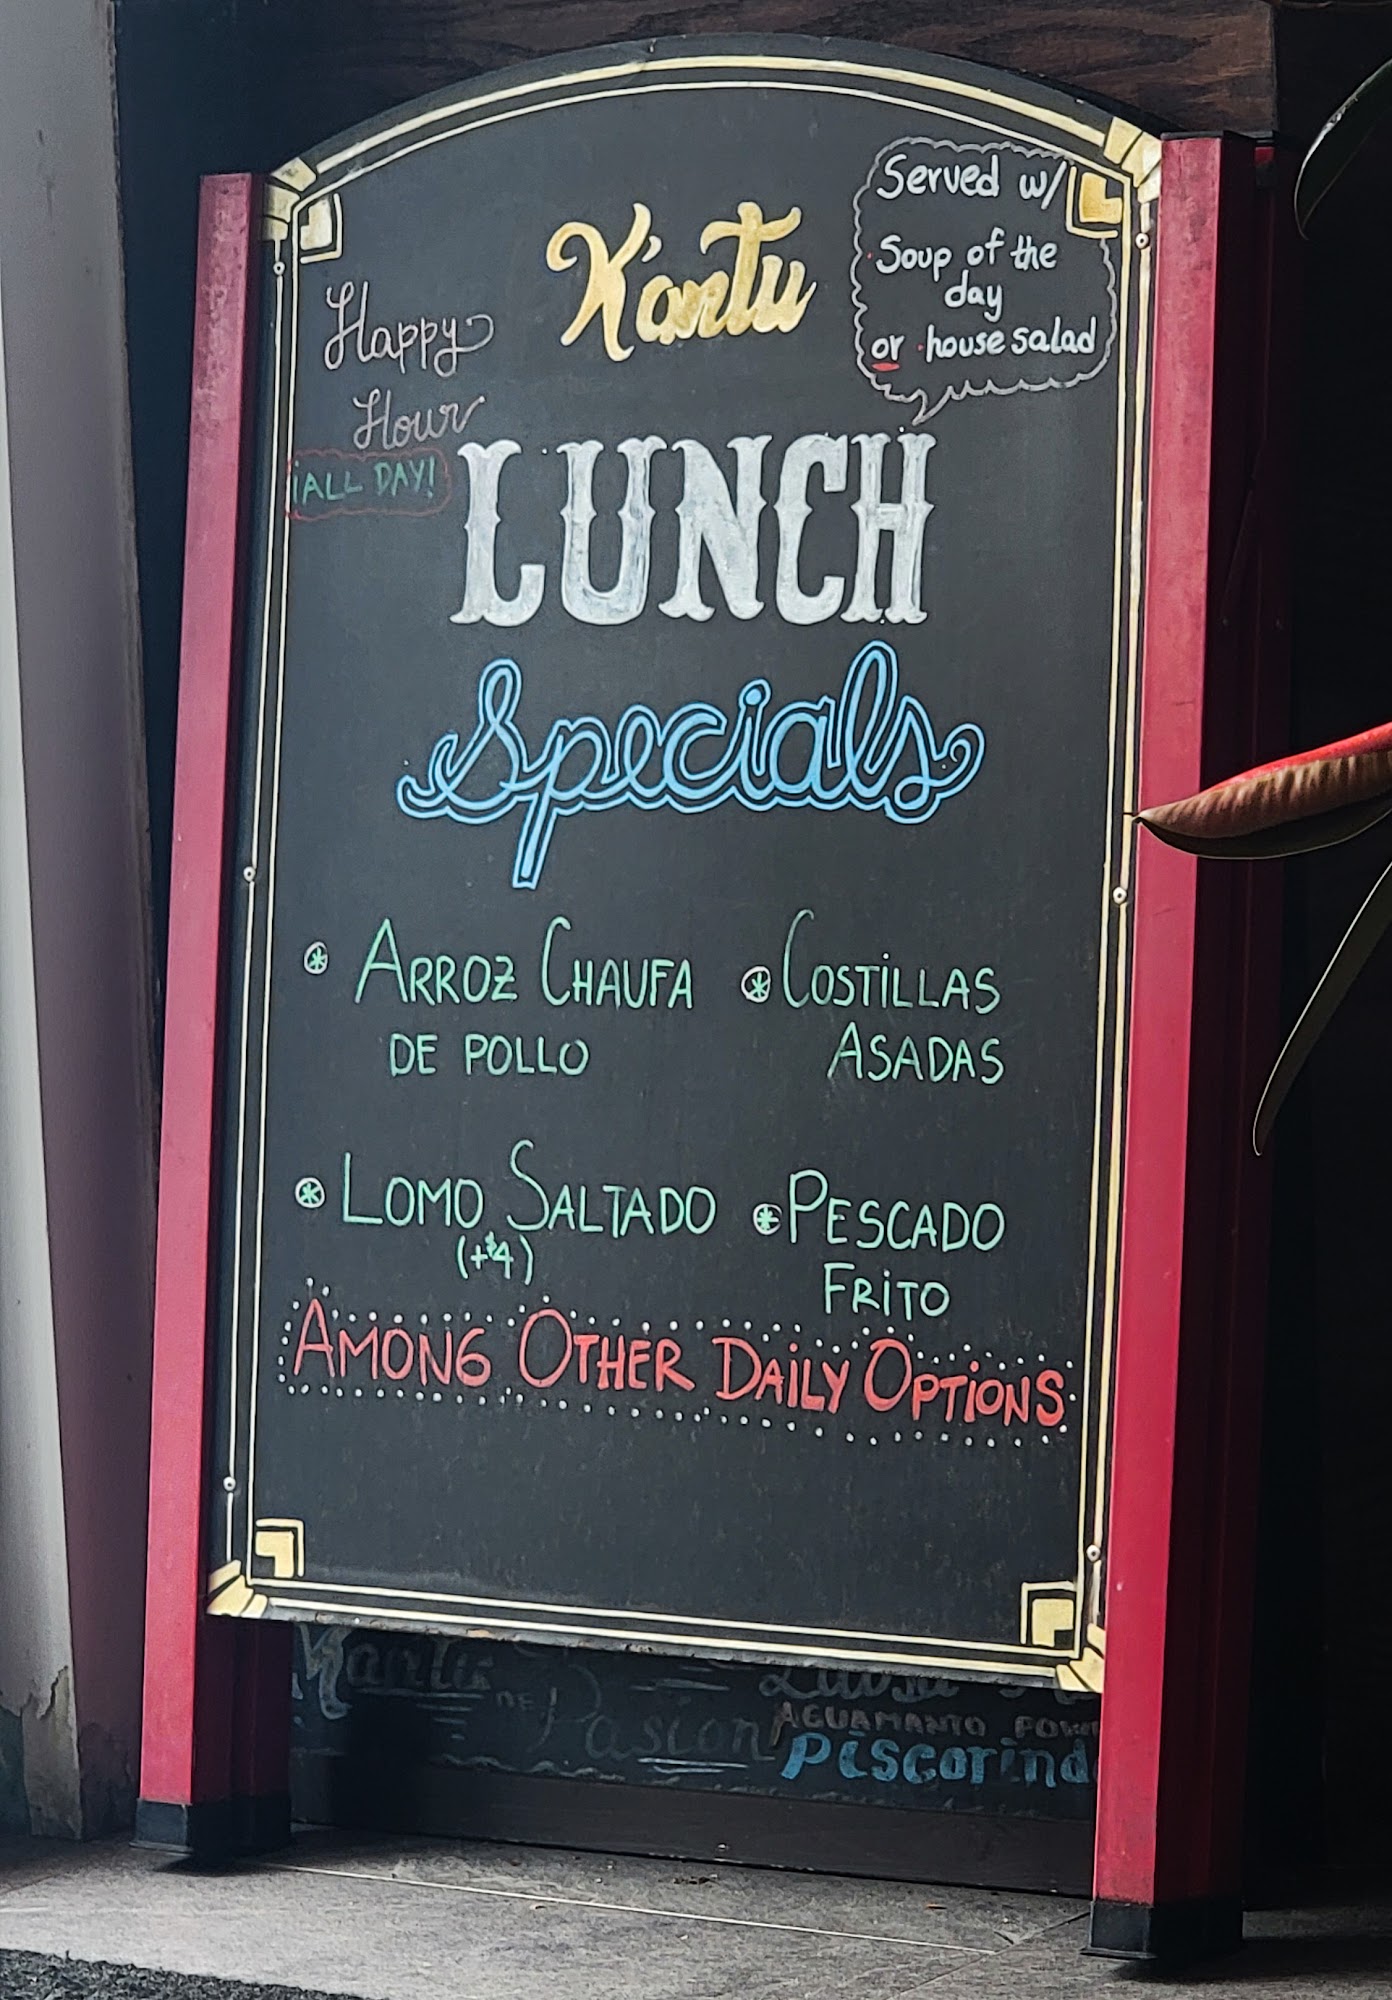 K'antu
Served w/
Soup of the
day
or house salad
Happy
Hour
¡ALL DAY!
LUNCH
Specials
ARROZ CHAUFA
DE POLLO
COSTILLAS
ASADAS
LOMO SALTADO
(+$4)
PESCADO
FRITO
AMONG OTHER DAILY OPTIONS
DE Pasion
AGUAMANTO